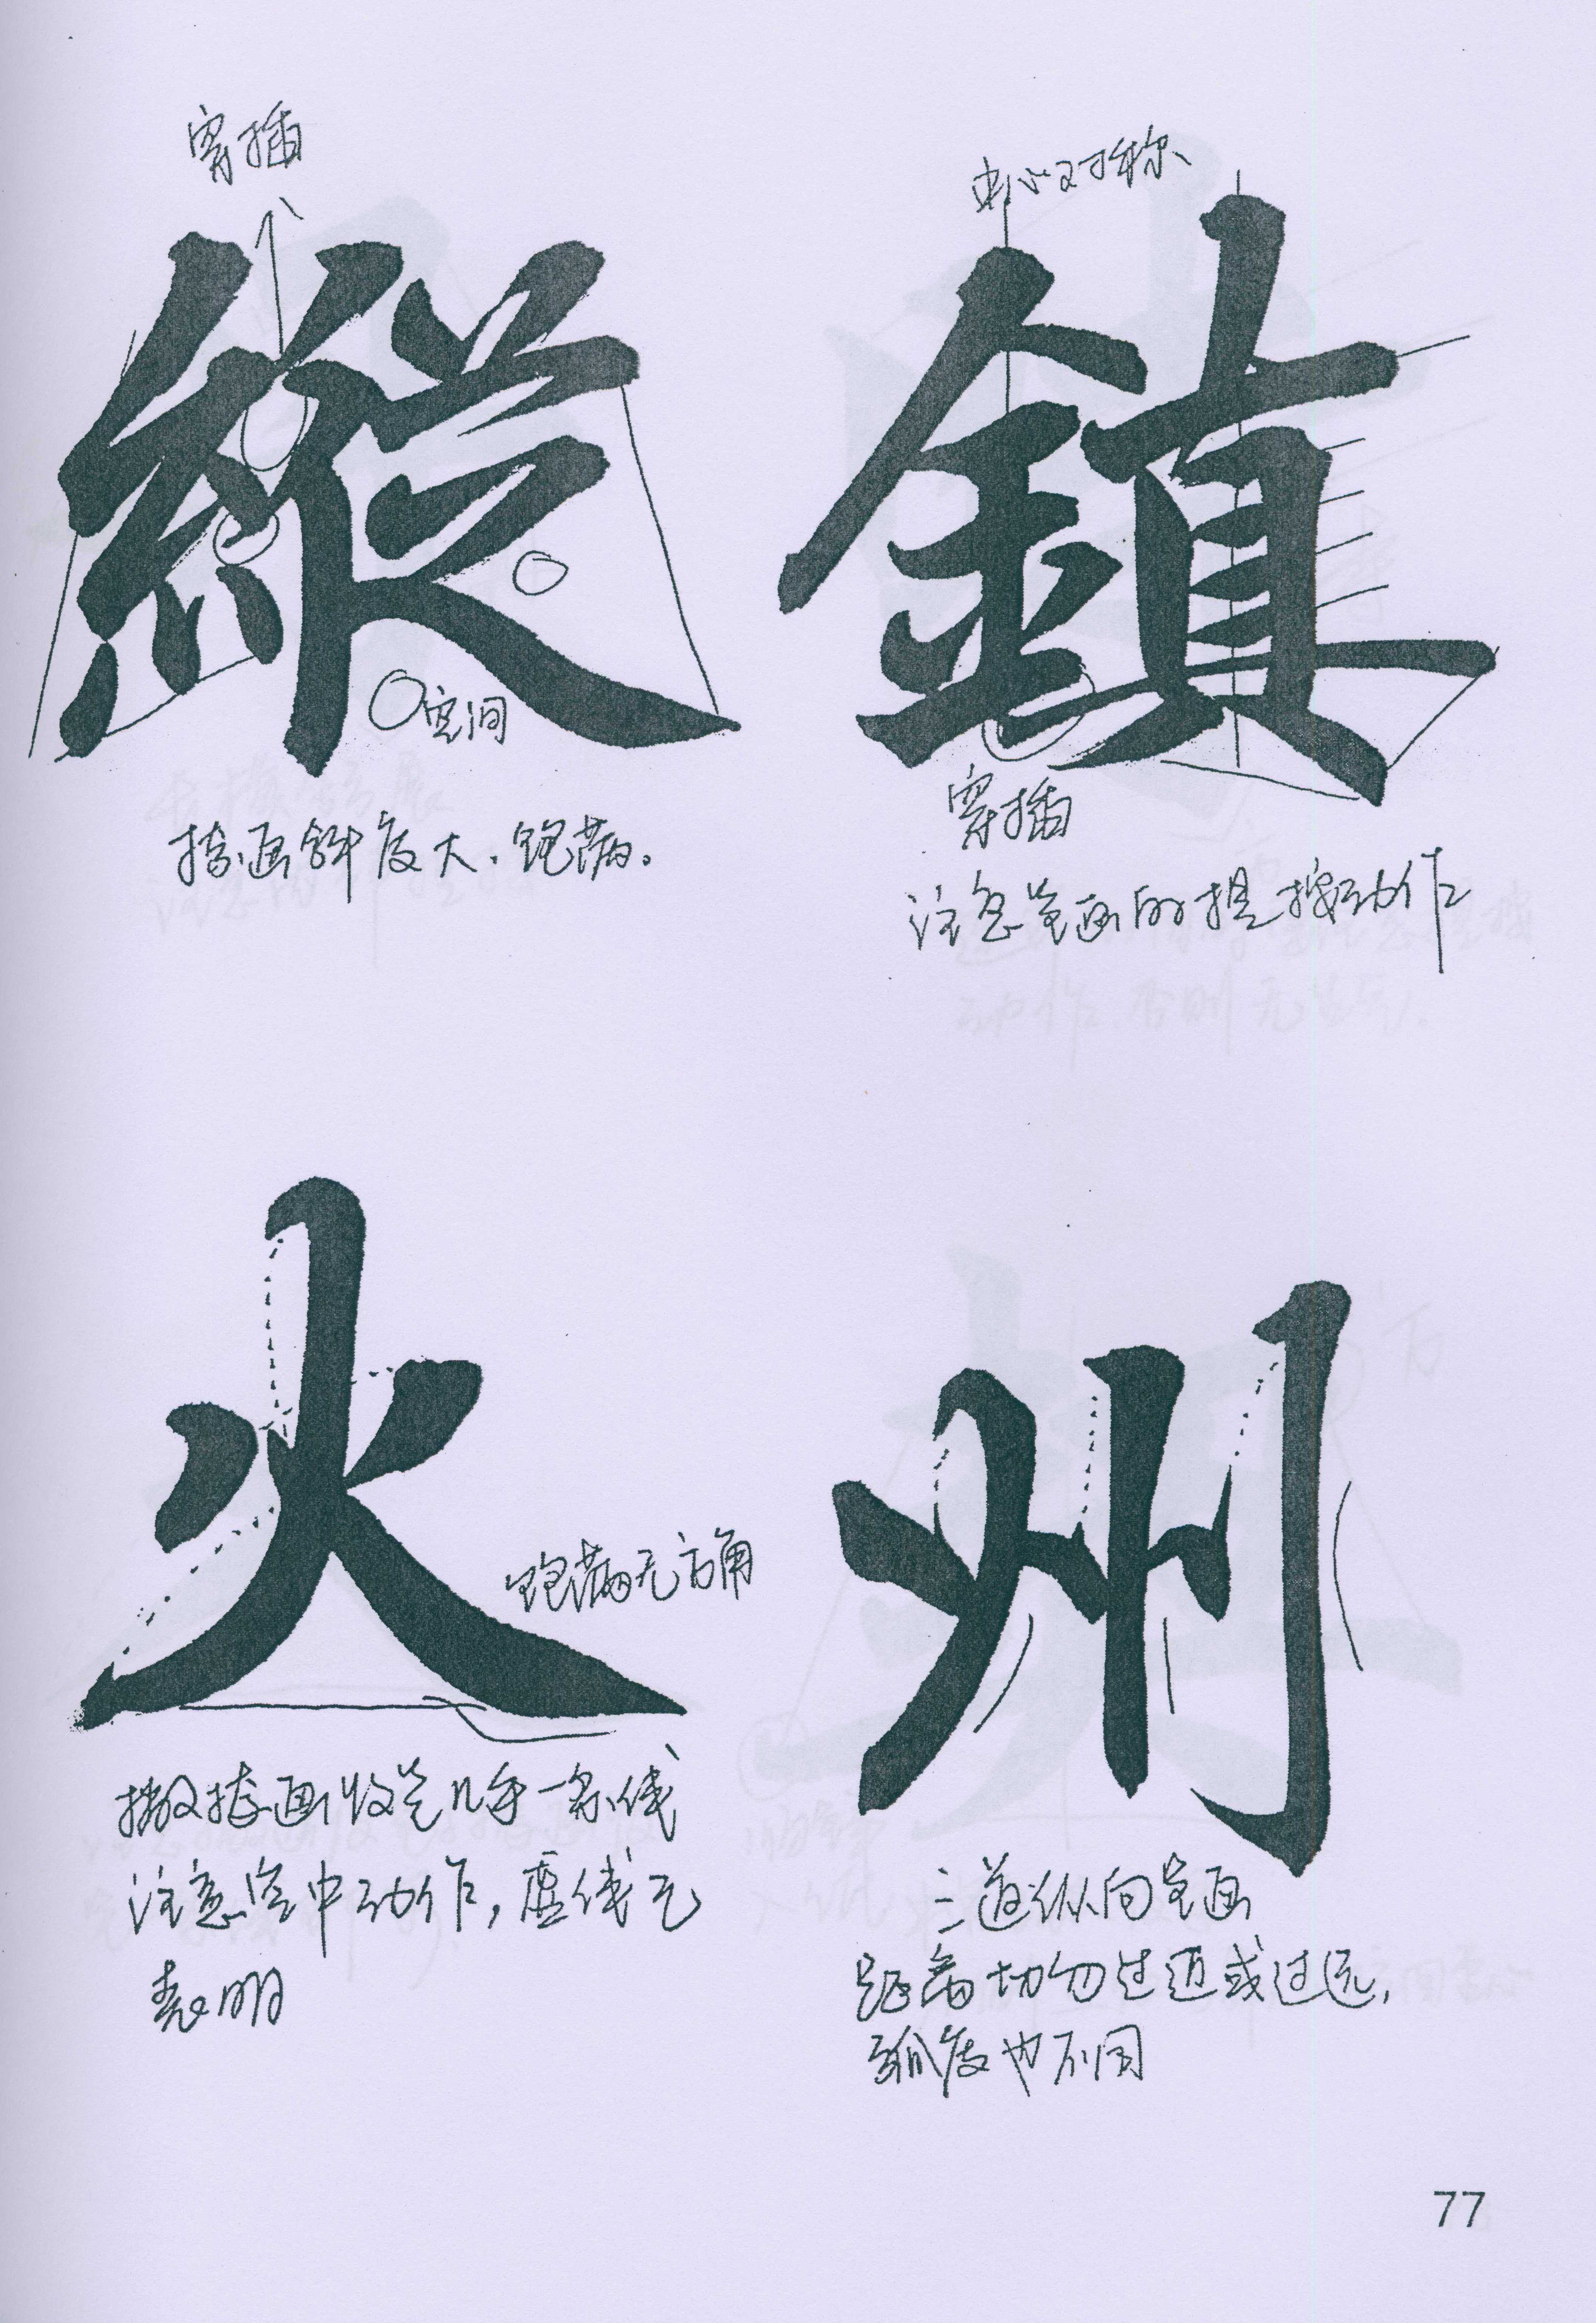 穿插
縱
空间
捺画斜度大.饱满。
中心对称
鎮
穿插
注意笔画的提按动作
火
饱满无方角
撇捺画收笔几乎一条线
注意空中动作,虚线已
表明
州
三道纵向笔画
距离切勿过近或过远,
弧度也不同
77